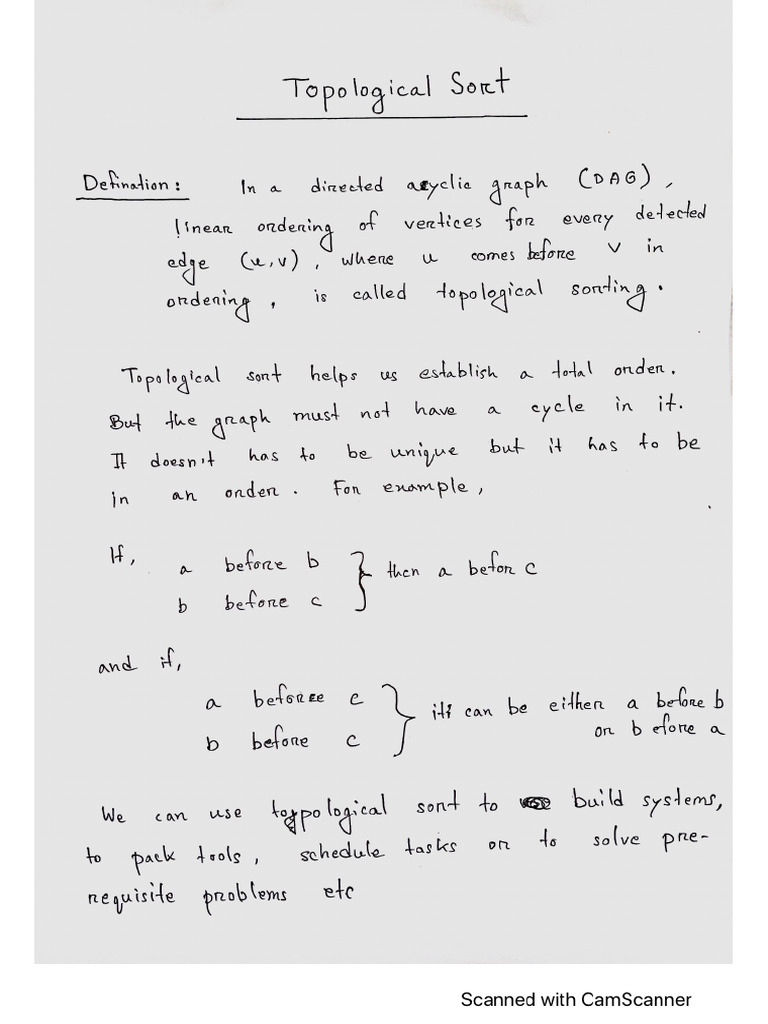 Topological Sort
Defination: In a directed acyclic graph (DAG),
linear ordering of vertices for every detected
edge (u,v), where u comes before v in
ordering, is called topological sorting.
Topological sort helps us establish a total order.
But the graph must not have a cycle in it.
It doesn't has to be unique but it has to be
in an order. For example,
If, a before b } then a befor c
b before c
and if,
a before c } it can be either a before b
b before c or b efore a
We can use topological sort to build systems,
to pack tools, schedule tasks or to solve pre-
requisite problems etc
Scanned with CamScanner